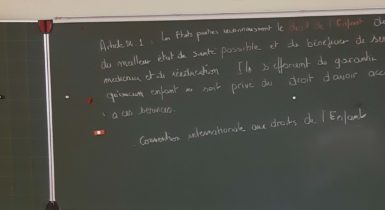 Article 24.1 : Les Etats parties reconnaissent le droit de l'Enfant de
du meilleur état de santé possible et de bénéficier de ser
médicaux et de rééducation Ils s'efforcent de garantir
qu'aucun enfant ne soit privé du droit d'avoir acc
à ces services.
Convention internationale aux droits de l'Enfant